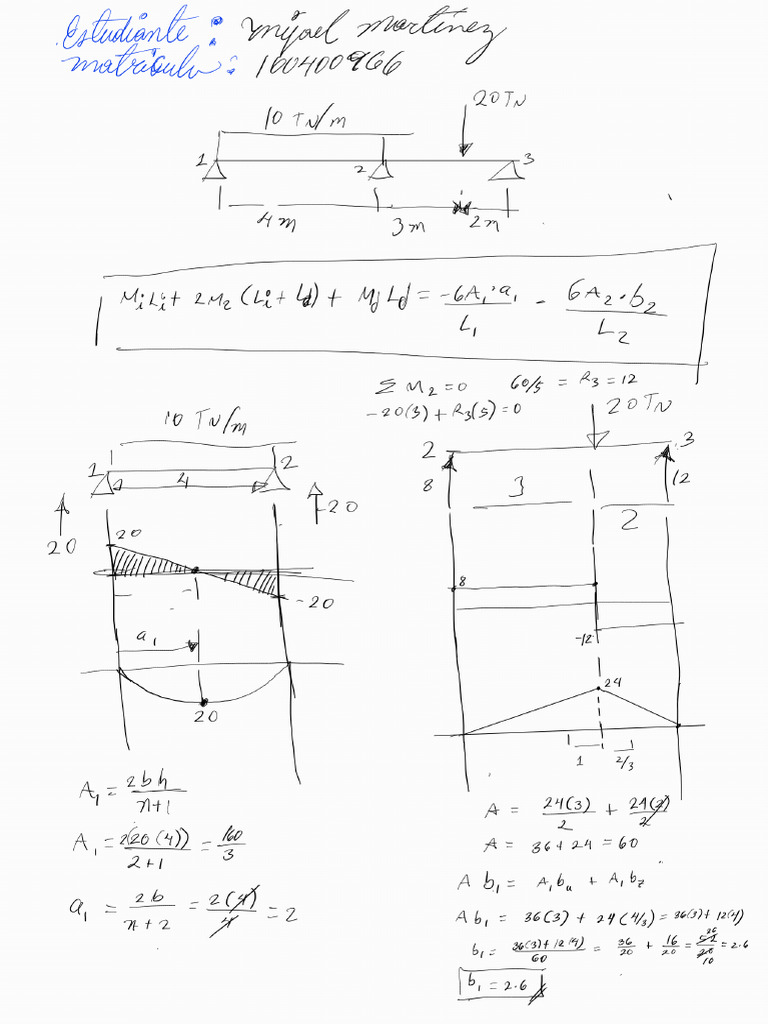 Estudiante : Mijael Martínez
Matricula : 160400966
10 TN/m
20 TN
1
2
3
4 m
3 m
2 m
MiLi + 2M2 (Li + Ld) + Md Ld = -6A1·a1/L1 - 6A2·b2/L2
Σ M2 = 0 60/5 = R3 = 12
-20(3) + R3(5) = 0
10 TN/m
20 TN
1
2
4
20
-20
2
3
8
12
3
2
20
-20
8
-12
a1
20
24
1
2/3
A1 = 2bh/n+1
A1 = 2(20(4))/2+1 = 160/3
a1 = 2b/n+2 = 2(4)/4 = 2
A = 24(3)/2 + 24(2)/2
A = 36 + 24 = 60
A b1 = A1 bu + A1 bz
A b1 = 36(3) + 24(4/3) = 36(3) + 12(4)
b1 = 36(3) + 12(4)/60 = 36/20 + 16/20 = 52/20 = 26/10 = 2.6
b1 = 2.6